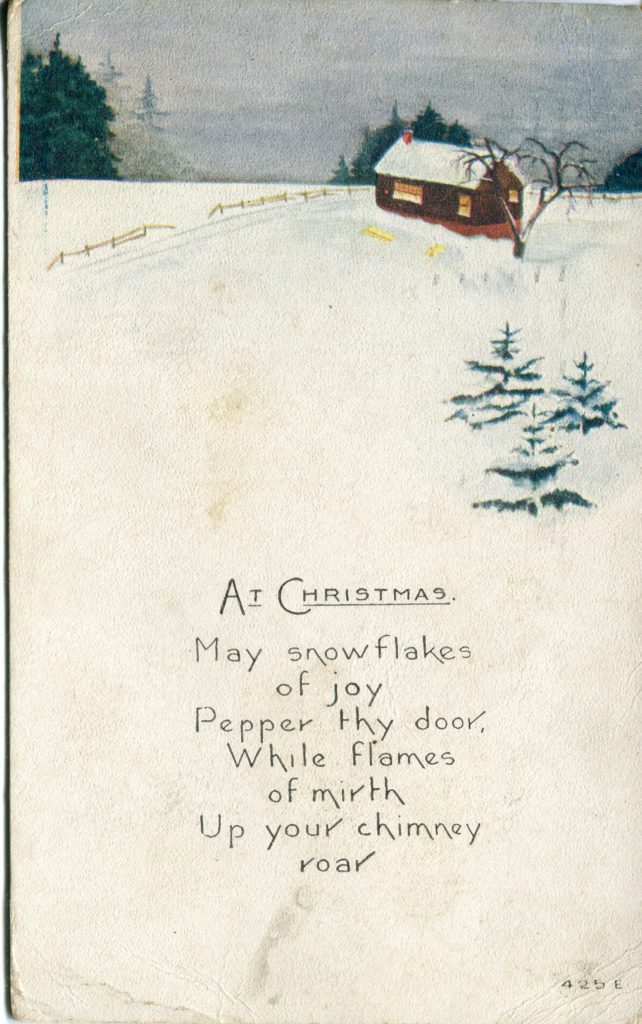 At Christmas.
May snowflakes
of joy
Pepper thy door,
While flames
of mirth
Up your chimney
roar
425 E